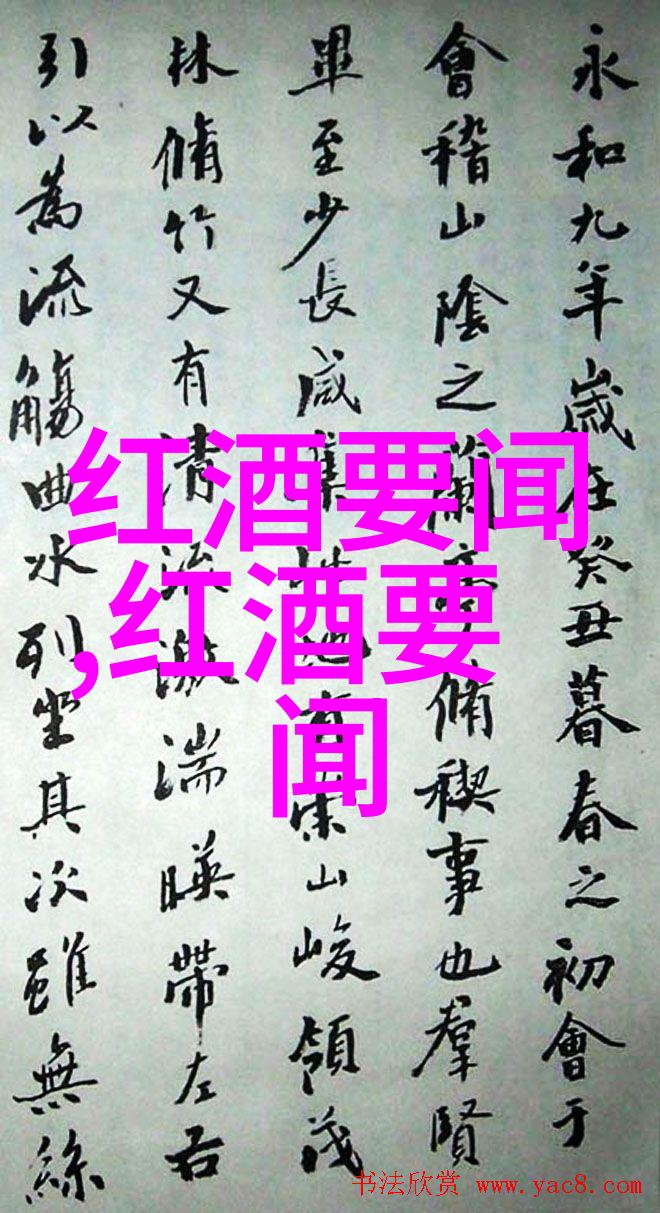 永和九年歲在癸丑暮春之初會于
會稽山陰之蘭亭脩稧事也羣賢
畢至少長咸集此地有崇山峻領茂
林脩竹又有清流激湍暎帶左右
引以為流觴曲水列坐其次雖無絲
红酒要闻
,红酒要
闻
书法欣赏 www.yac8.com